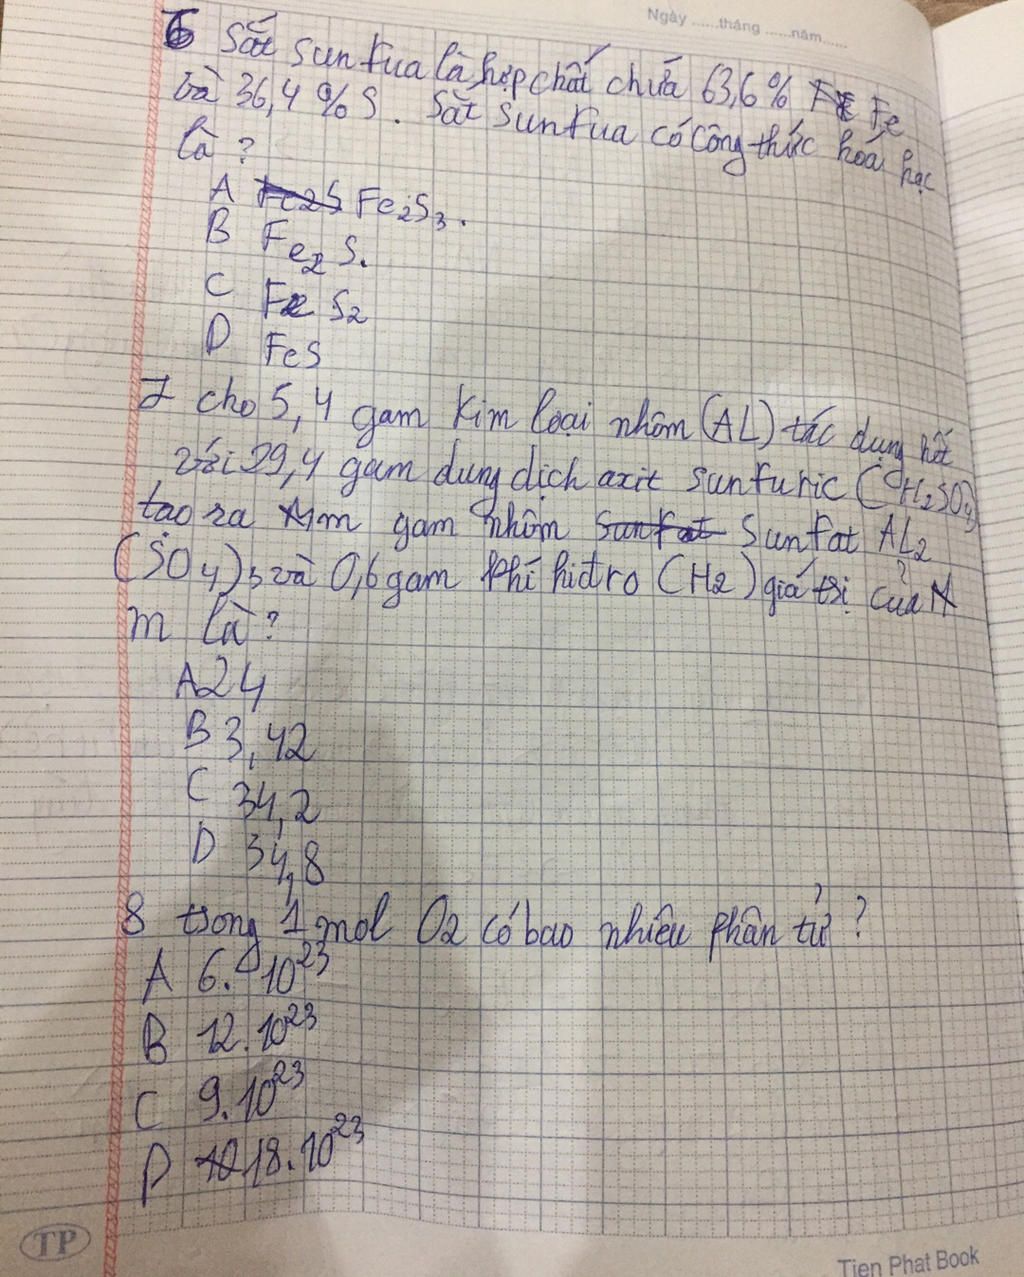 Ngày ......tháng ......năm......
6 Sắt sunfua là hợp chất chứa 63,6% Fe
và 36,4%S. Sắt Sunfua có công thức hoá học
là ?
A Fe2S Fe2S3.
B Fe2 S.
C Fe S2
D FeS
7 cho 5,4 gam kim loại nhôm (AL) tác dụng hết
với 29,4 gam dung dịch axit sunfuric (H2SO4)
tạo ra m gam nhôm Sunfat Sunfat AL2
(SO4)3 và 0,6 gam khí hiđro (H2) giá trị của
m là ?
A 24
B 3,42
C 34,2
D 34,8
8 trong 1 mol O2 có bao nhiêu phân tử ?
A 6.10²³
B 12.10²³
C 9.10²³
D 18.10²³
TP
Tien Phat Book